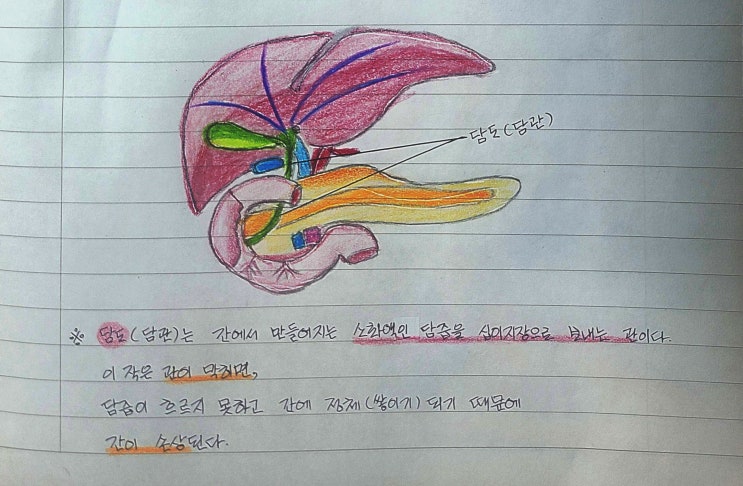 담도(담관)
※ 담도(담관)는 간에서 만들어지는 소화액인 담즙을 십이지장으로 보내는 관이다.
이 작은 관이 막히면,
담즙이 흐르지 못하고 간에 정체(쌓이기) 되기 때문에
간이 손상된다.